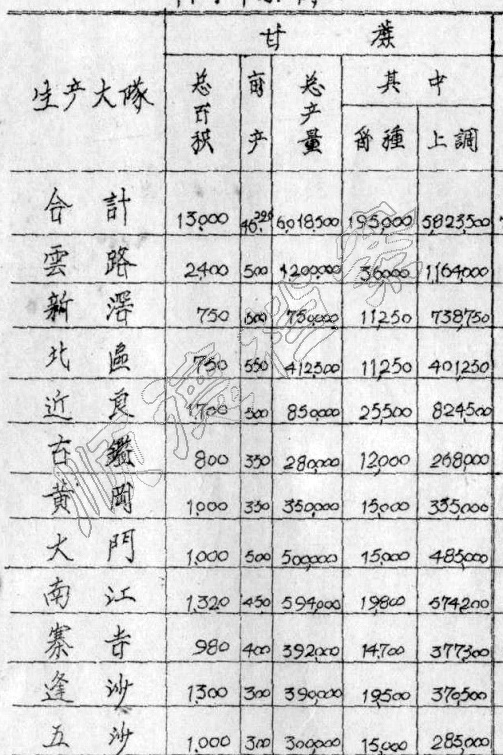 甘 蔗
生产大隊 总面积 亩产 总产量 其中
畄種 上調
合計 13,000 46,296 6,018,500 195,000 5,823,500
雲路 2,400 500 1,200,000 36,000 1,164,000
新滘 750 750,000 11,250 738,750
北區 750 550 412,500 11,250 401,250
近良 1,700 500 850,000 25,500 824,500
古鑑 800 350 280,000 12,000 268,000
黄岡 1,000 350 350,000 15,000 335,000
大門 1,000 500 500,000 15,000 485,000
南江 1,320 450 594,000 19,800 574,200
寨吉 980 400 392,000 14,700 377,300
逢沙 1,300 300 390,000 19,500 370,500
五沙 1,000 300 300,000 15,000 285,000
順德檔案